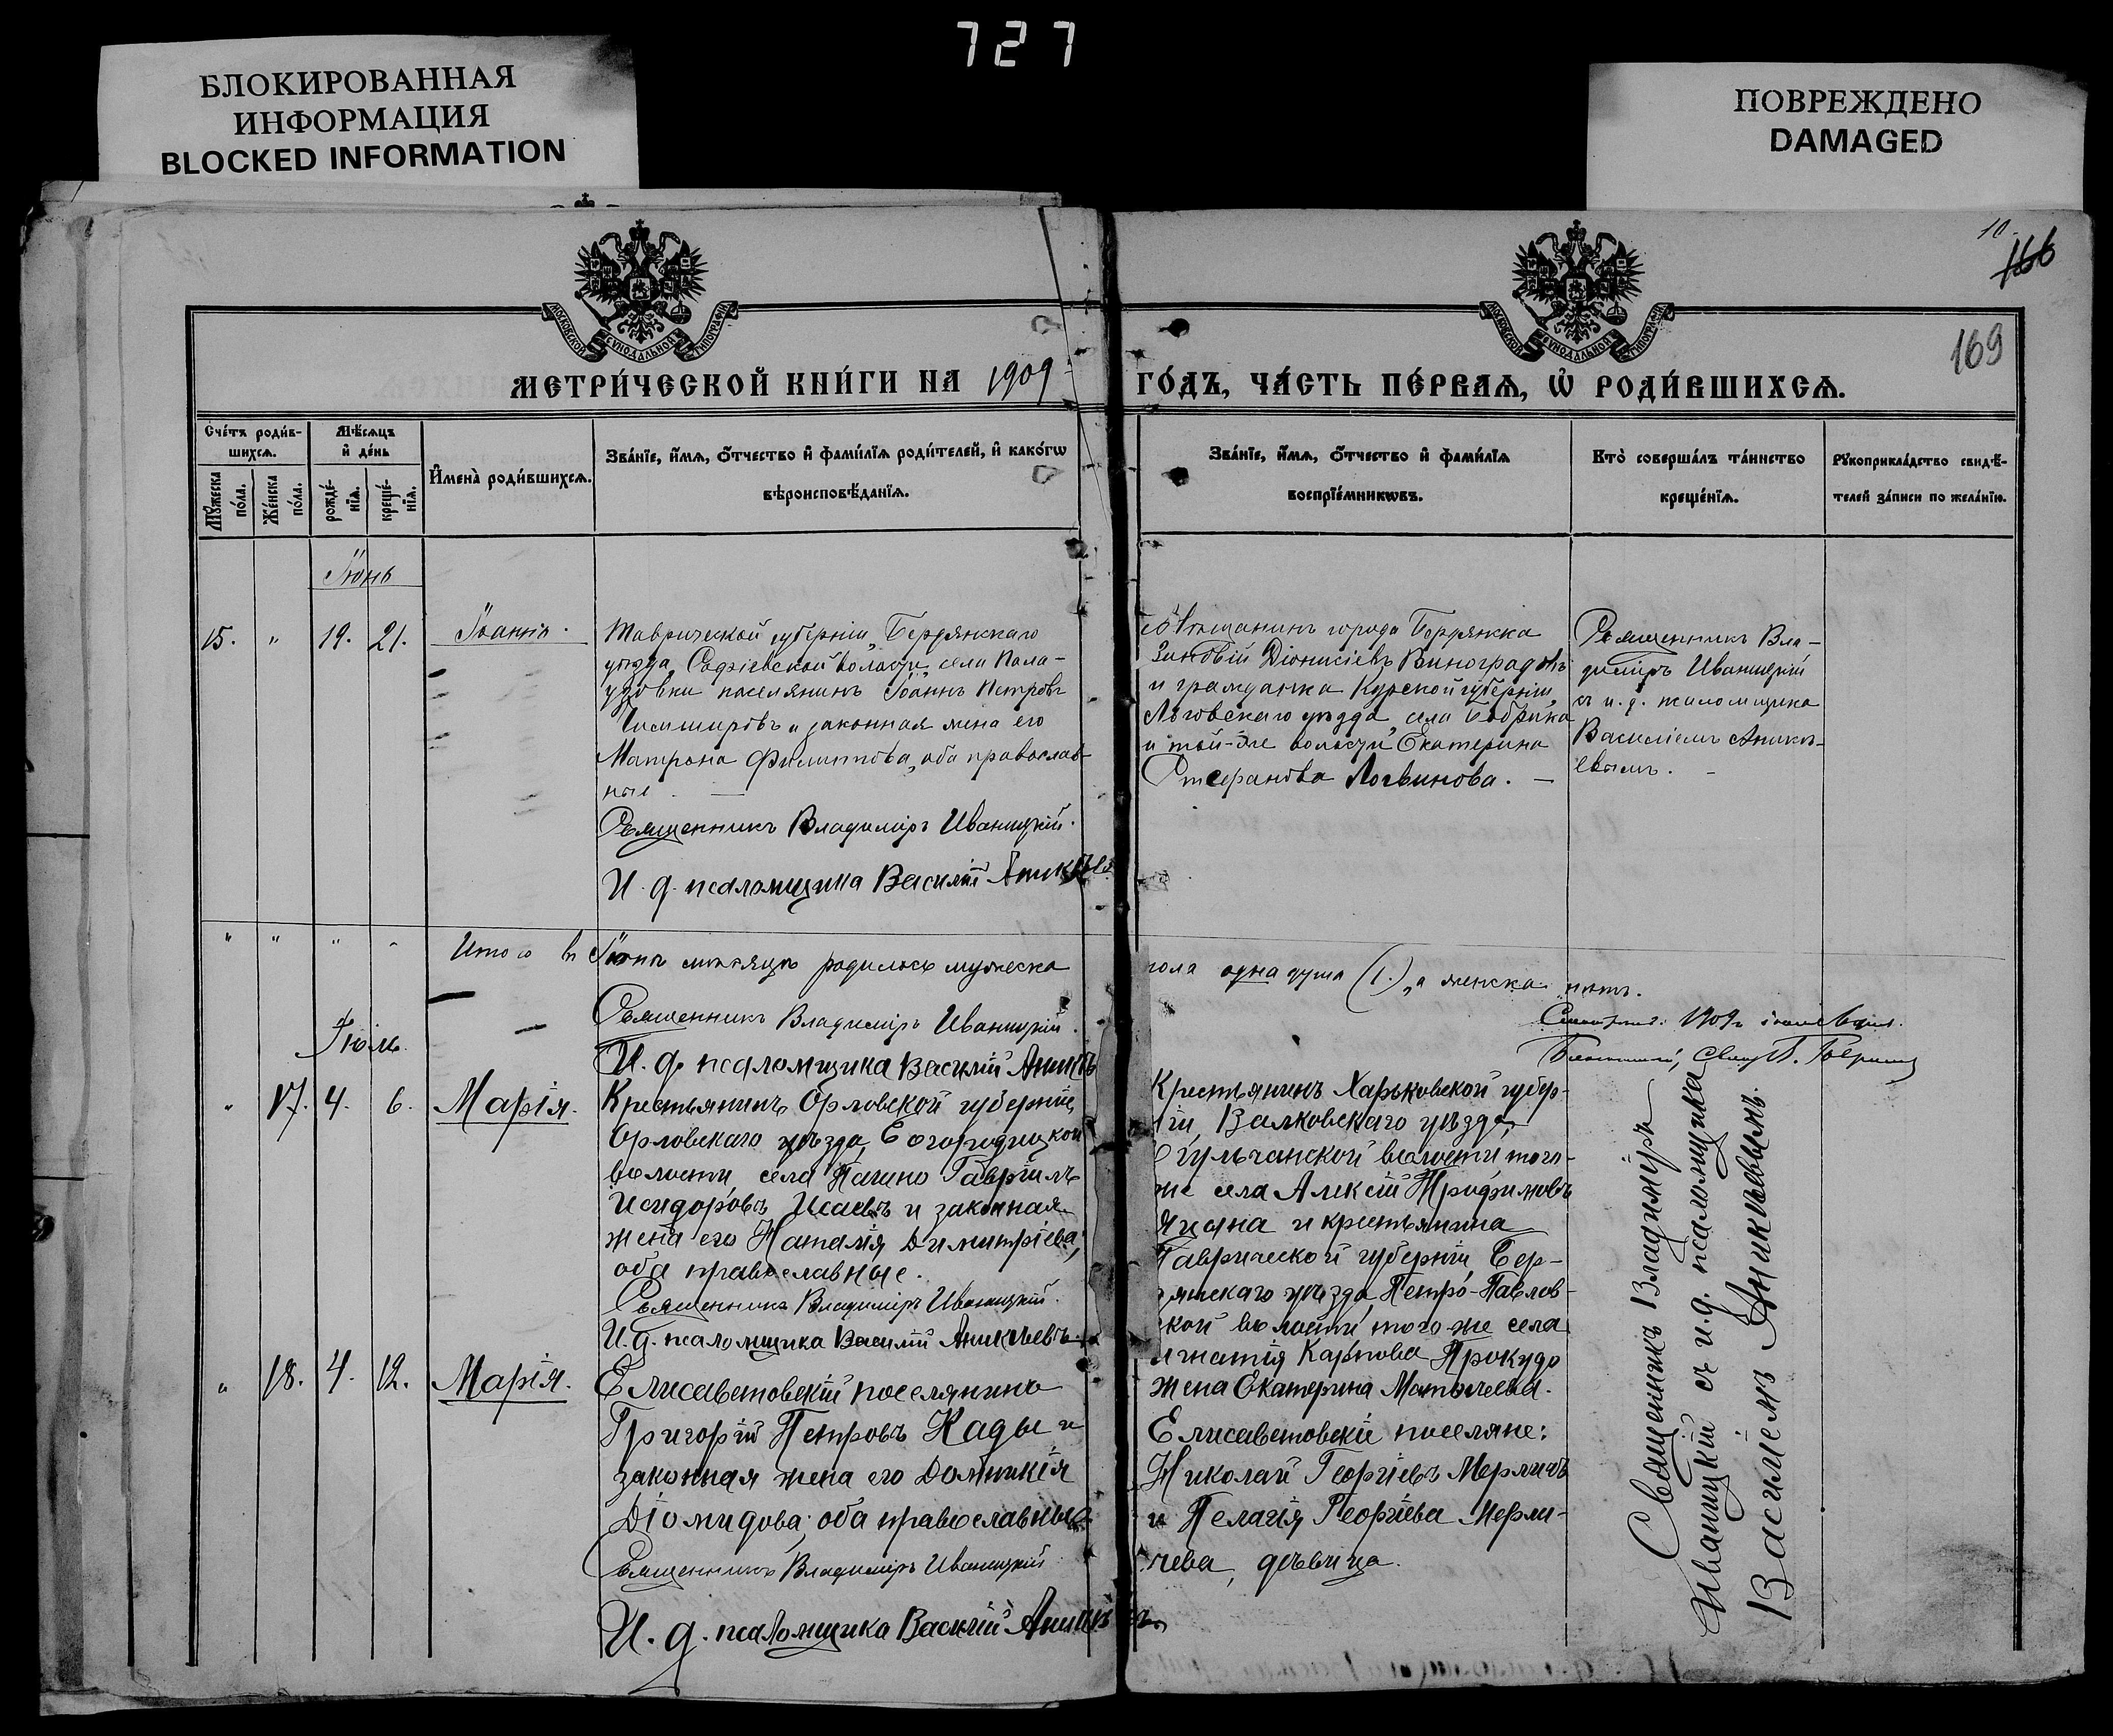 727
БЛОКИРОВАННАЯ
ИНФОРМАЦИЯ
BLOCKED INFORMATION
ПОВРЕЖДЕНО
DAMAGED
10
166
169
МОСКОВСКОЙ СѴНОДАЛЬНОЙ ТИПОГРАФІИ
МОСКОВСКОЙ СѴНОДАЛЬНОЙ ТИПОГРАФІИ
МЕТРИ́ЧЕСКОЙ КНИ́ГИ НА 1909
ГО́ДЪ, ЧА́СТЬ ПЕ́РВАѦ, Ѡ҆ РОДИ́ВШИХСѦ.
Сче́тъ роди́в-
шихсѧ.
Мѣ́сѧцъ
и҆ де́нь
Мꙋ́жеска
по́ла.
Же́нска
по́ла.
рожде́-
нїѧ.
креще́-
нїѧ.
И҆мена̀ роди́вшихсѧ.
Зва́нїе, и҆́мѧ, ѻ҆́тчество и҆ фами́лїѧ роди́телей, и҆ како́гѡ
вѣроисповѣ́данїѧ.
Зва́нїе, и҆́мѧ, ѻ҆́тчество и҆ фами́лїѧ
воспрїе́мникѡвъ.
Кто̀ соверша́лъ та́инство
креще́нїѧ.
Рꙋкоприкла́дство свидѣ́-
телей за́писи по жела́нїю.
Іюнь
15. " 19. 21. Іоаннъ.
Таврической губерніи, Бердянскаго
уѣзда, Софіевской волости, села Пала-
узовки поселянинъ Іоаннъ Петровъ
и законная жена его
Матрона Филиппова, оба православ-
ные. —
Священникъ Владиміръ Иваницкій.
И. д. псаломщика Василій Аникѣевъ
мѣщанинъ города Бердянска
Зиновій Діонисіевъ Виноградовъ
и гражданка Курской губерніи,
Льговскаго уѣзда, села Бобрика
и той-же волости, Екатерина
Стефанова Логвинова. —
Священникъ Вла-
диміръ Иваницкій
съ и. д. псаломщика
Василіемъ Аникѣ-
евымъ. —
" " " " Итого въ Іюнѣ мѣсяцѣ родилось мужеска
пола одна душа (1.), а женска нѣтъ.
Священникъ Владиміръ Иваницкій.
И. д. псаломщика Василій Аникѣ
1909
Іюль.
" 17. 4. 6. Марія.
Крестьянинъ Орловской губерніи,
Орловскаго уѣзда, Богородицкой
волости, села Пагино Гавріилъ
Исидоровъ Исаевъ и законная
жена его Наталія Димитріева;
оба православные.
Священникъ Владиміръ Иваницкій.
И. д. псаломщика Василій Аникѣевъ.
Крестьянинъ Харьковской губер-
ніи, Валковскаго уѣзда,
волости того-
же села Алексій Трофимовъ
и крестьянина
Таврической губерніи, Бер-
дянскаго уѣзда, Петро-Павлов-
ской волости того-же села
Игнатія Карпова Прокудо
жена Екатерина Матвѣева.
" 18. 4. 12. Марія.
Елисаветовскій поселянинъ
Григорій Петровъ Кады и
законная жена его Домникія
Діомидова; оба православные.
Священникъ Владиміръ Иваницкій
И. д. псаломщика Василій Аникѣевъ
Елисаветовскіе поселяне:
Николай Георгіевъ Мерличъ
и Пелагія Георгіева Мерли-
чева, дѣвица.
Священникъ Владиміръ
Иваницкій съ и. д. псаломщика
Василіемъ Аникѣевымъ.